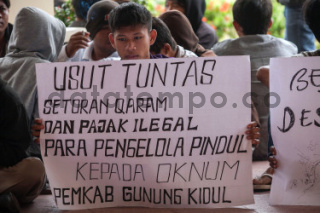 USUT TUNTAS
SETORAN QARAM
DAN PAJAK ILEGAL
PARA PENGELOLA PINDUL
KEPADA OKNUM
PEMKAB GUNUNG KIDUL
BE
DES
datatempo.co